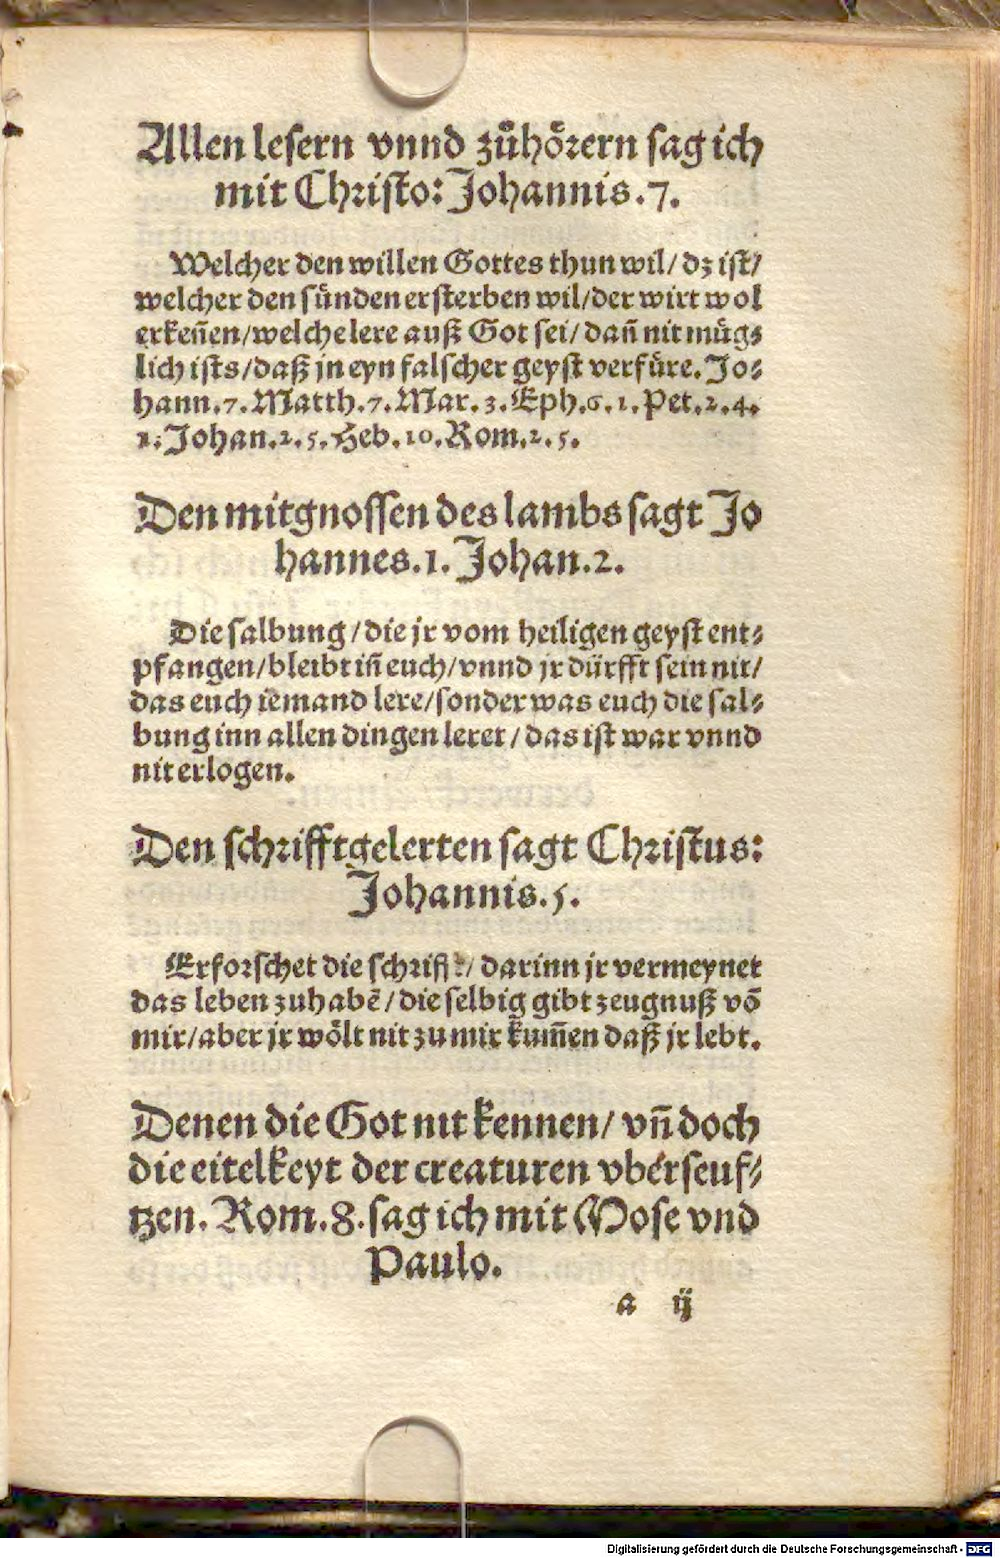 Allen lesern vnnd zůhoͤrern sag ich
mit Christo: Johannis.7.
Welcher den willen Gottes thun wil/ dz ist/
welcher den sünden ersterben wil/der wirt wol
erkeñen/welche lere auß Got sei/ dañ nit müg⸗
lich ists/daß jn eyn falscher geyst verfüre. Jo⸗
hann.7. Matth.7. Mar.3. Eph.6. 1. Pet.2.4.
1. Johan.2.5. Heb.10. Rom.2.5.
Den mitgnossen des lambs sagt Jo
hannes.1. Johan.2.
Die salbung/die jr vom heiligen geyst ent⸗
pfangen/bleibt iñ euch/vnnd jr dürfft sein nit/
das euch iemand lere/sonder was euch die sal⸗
bung inn allen dingen leret/das ist war vnnd
nit erlogen.
Den schrifftgelerten sagt Christus:
Johannis.5.
Erforschet die schrifft/ darinn jr vermeynet
das leben zuhabē/die selbig gibt zeugnuß vō
mir/aber jr wölt nit zu mir kum̃en daß jr lebt.
Denen die Got nit kennen/ vñ doch
die eitelkeyt der creaturen vberseuf⸗
tzen. Rom.8. sag ich mit Mose vnd
Paulo.
a ij
Digitalisierung gefördert durch die Deutsche Forschungsgemeinschaft - DFG